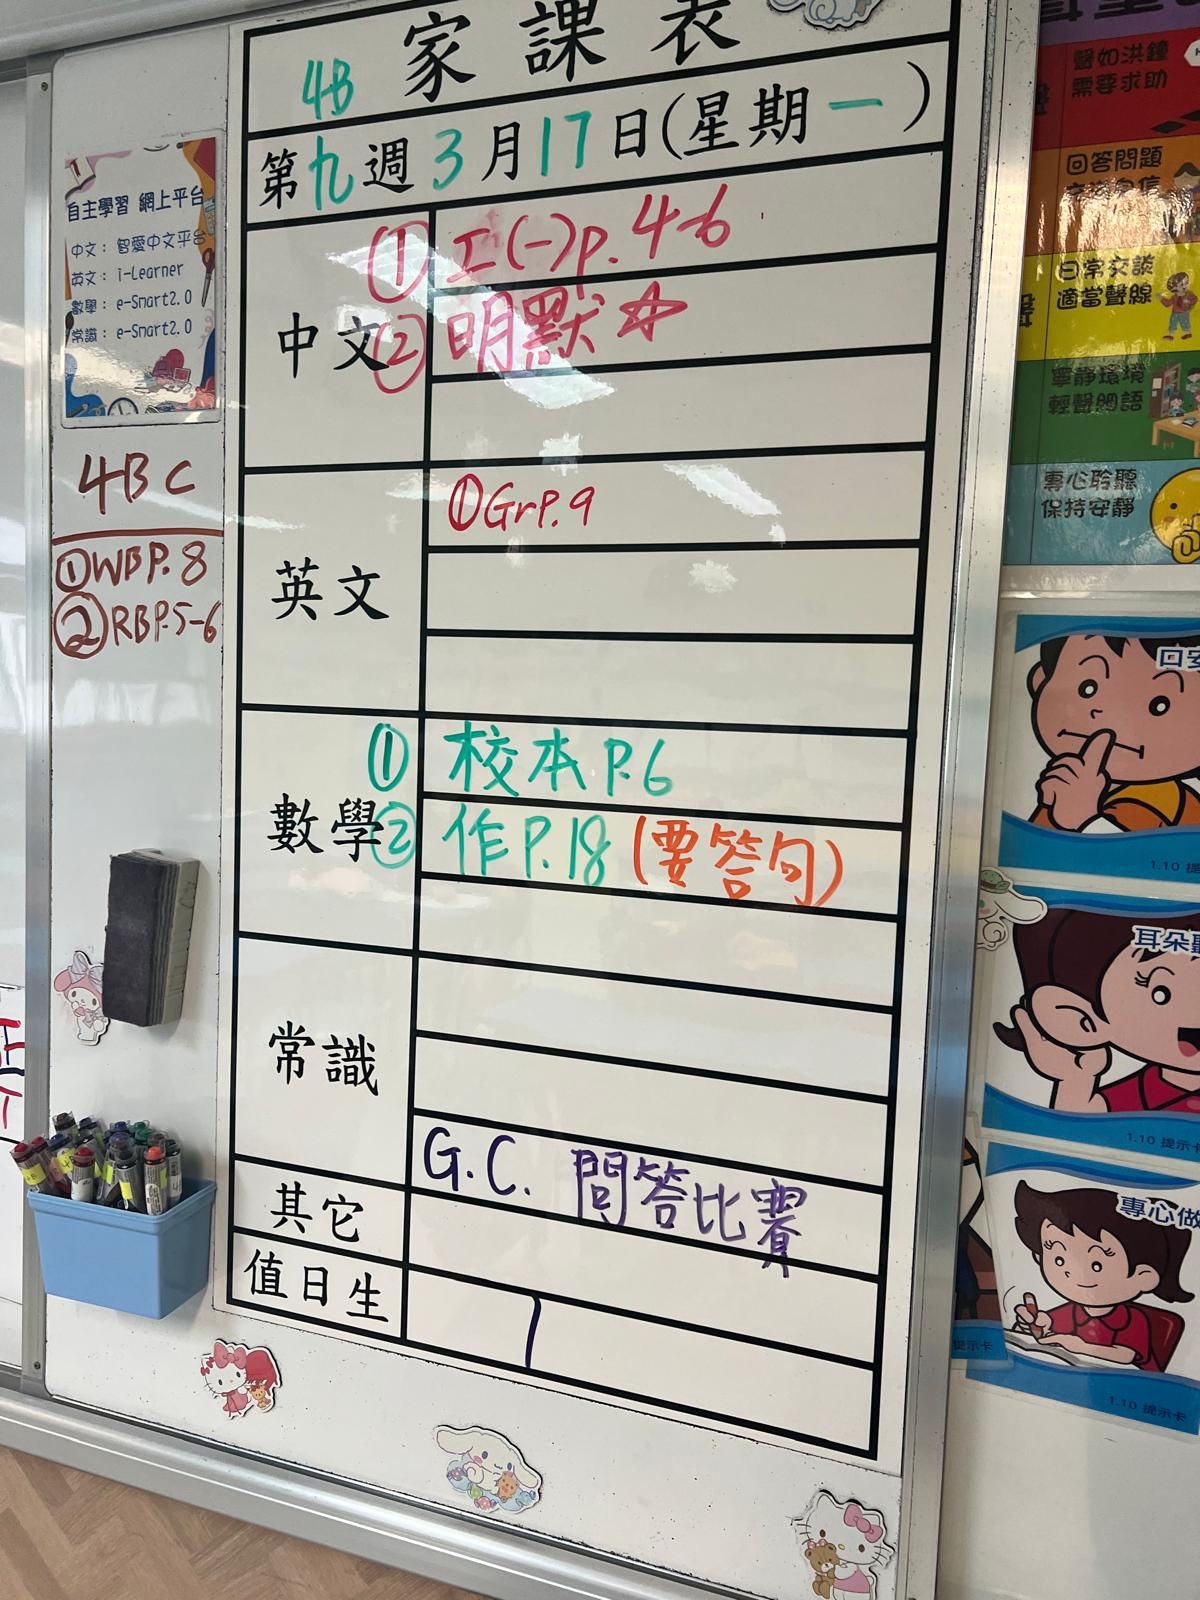 家課表
4B
第九週3月17日(星期一)
中文
① 工(一)p. 4-6
② 明默☆
英文
①GrP.9
數學
① 校本 P.6
② 作P.18 (要答句)
常識
其它
G.C. 問答比賽
值日生
1
自主學習 網上平台
中文： 智愛中文平台
英文： i-Learner
數學： e-Smart2.0
常識： e-Smart2.0
4B C
①WBP.8
②RBP.5-6
聲如洪鐘
需要求助
回答問題
日常交談
適當聲線
寧靜環境
輕聲細語
專心聆聽
保持安靜
1.10 提
耳朵
1.10 提示卡
專心做
提示卡
1.10 提示卡